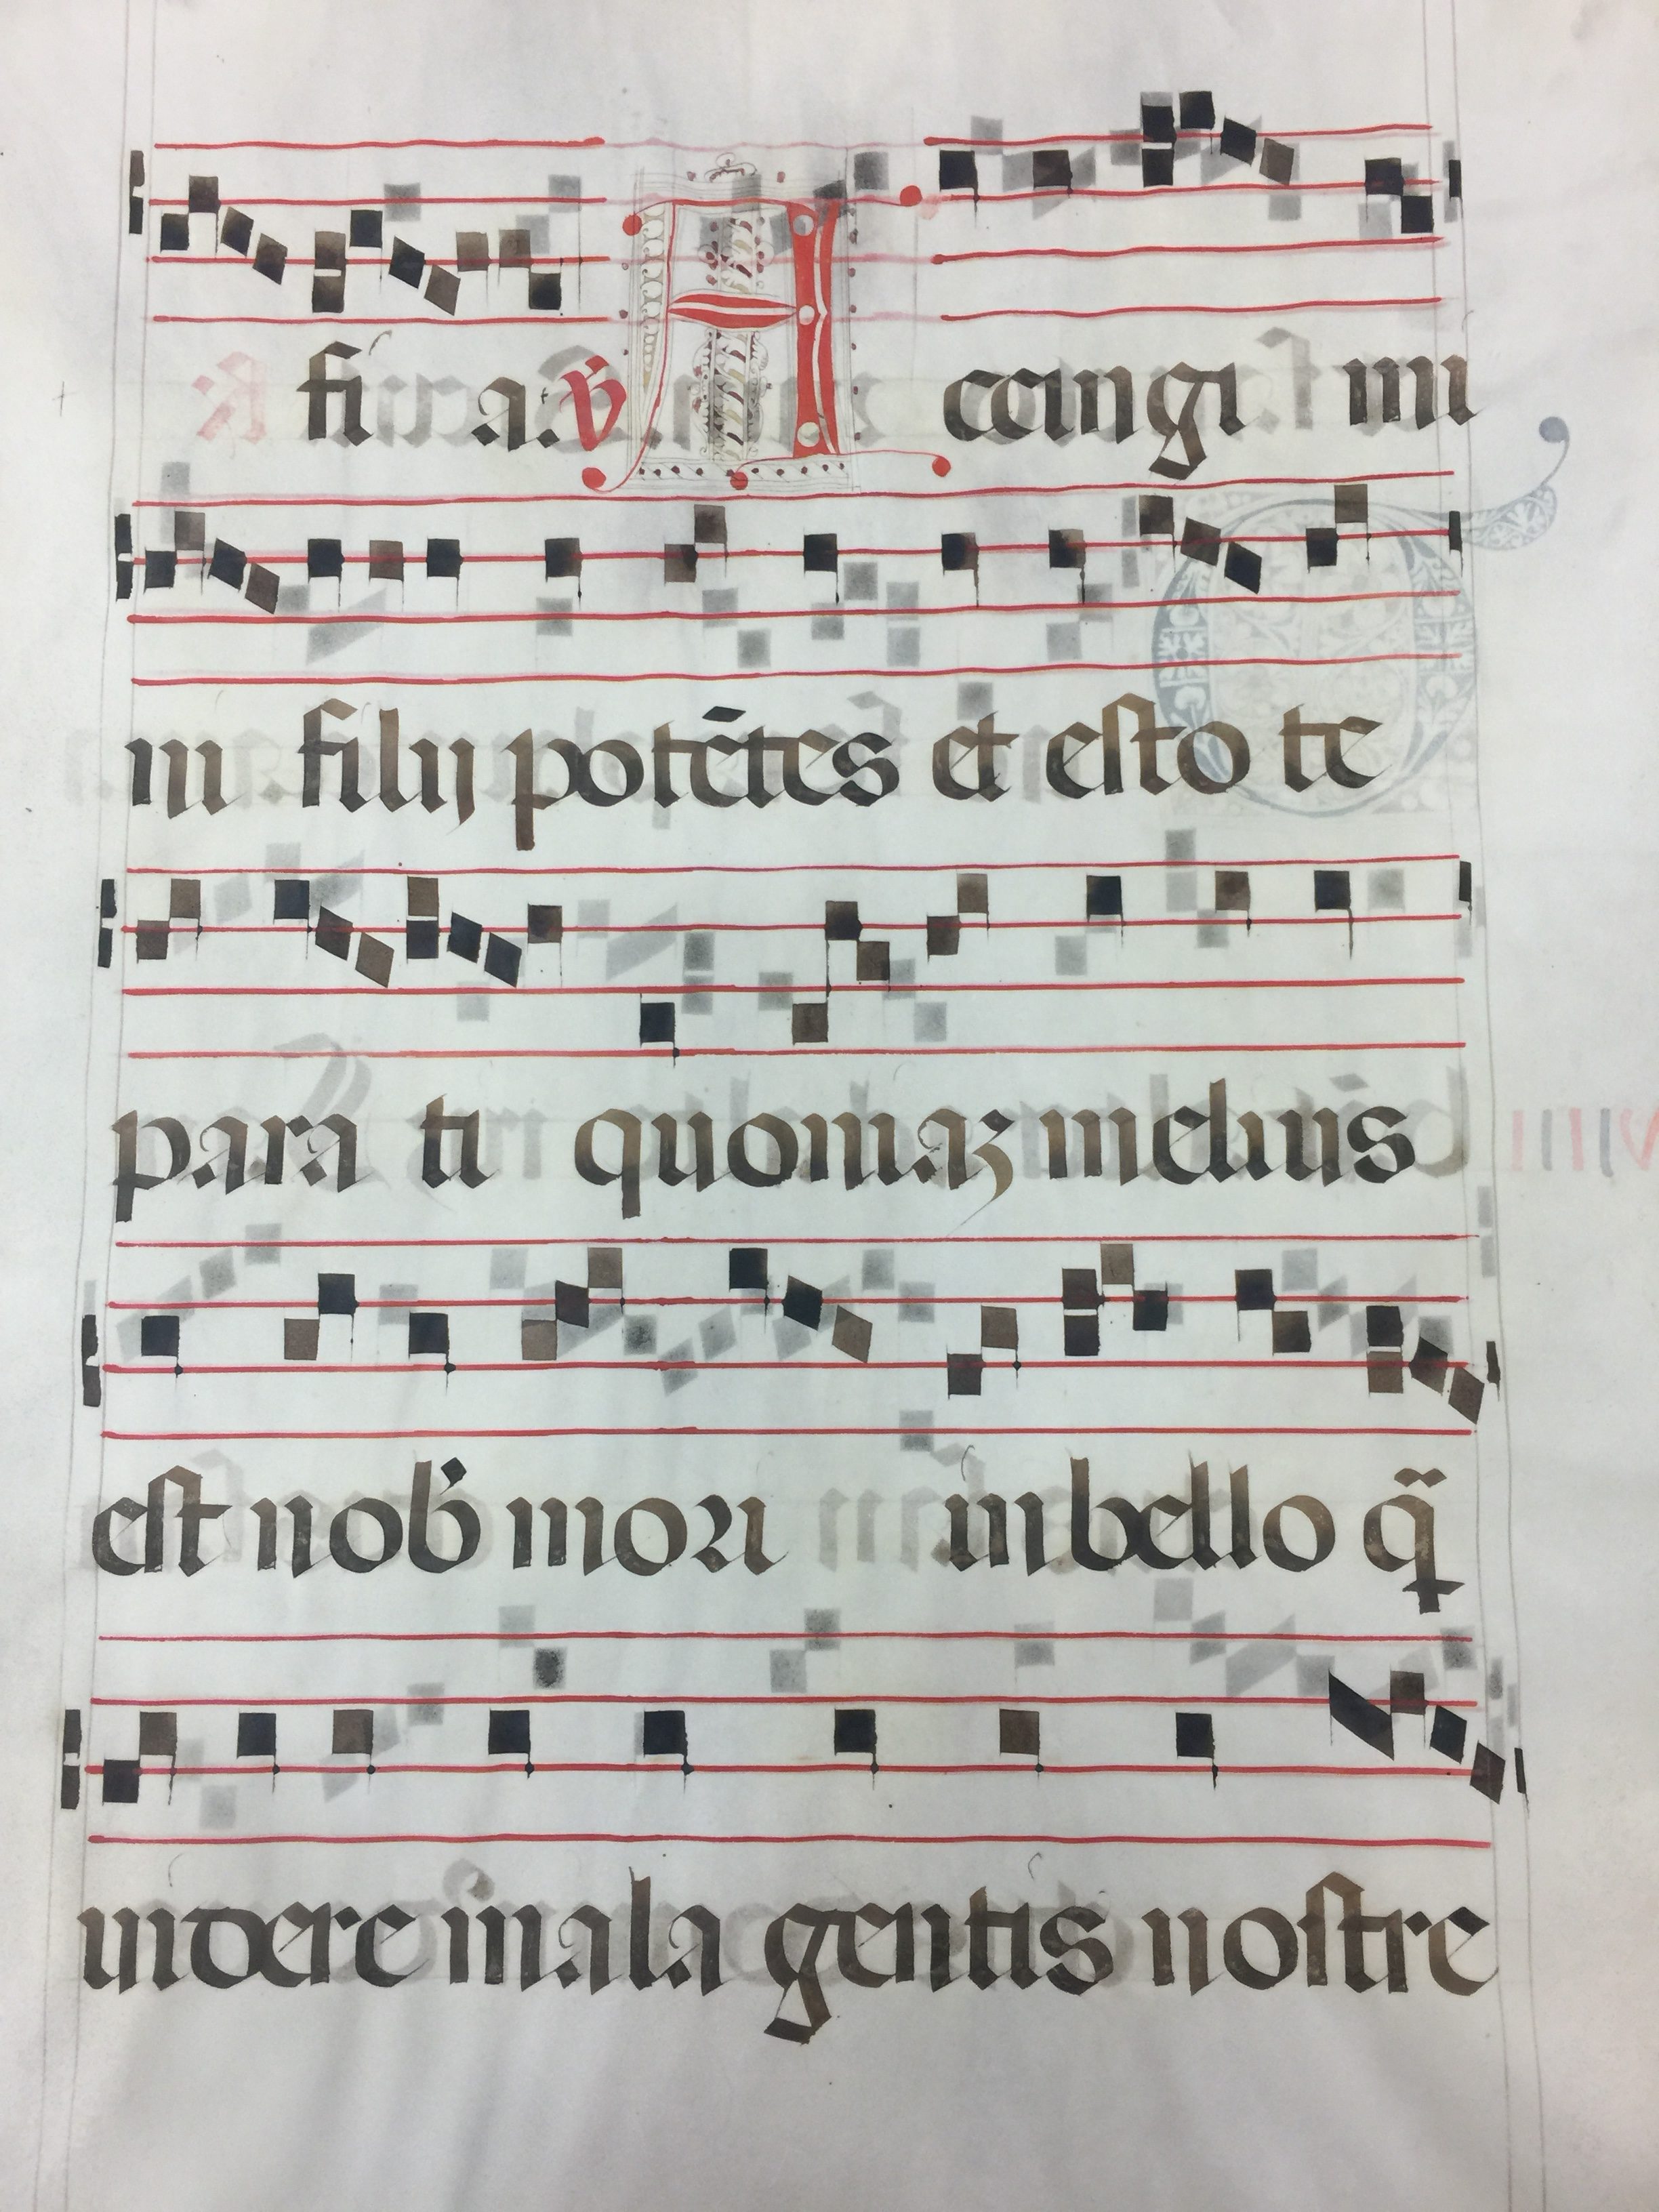 fi a. ℣ A ccingi mi
ni filij potētes et esto te
para ti quoniaꝫ melius
est nob' mori in bello q̃
uidere mala gentis nostre